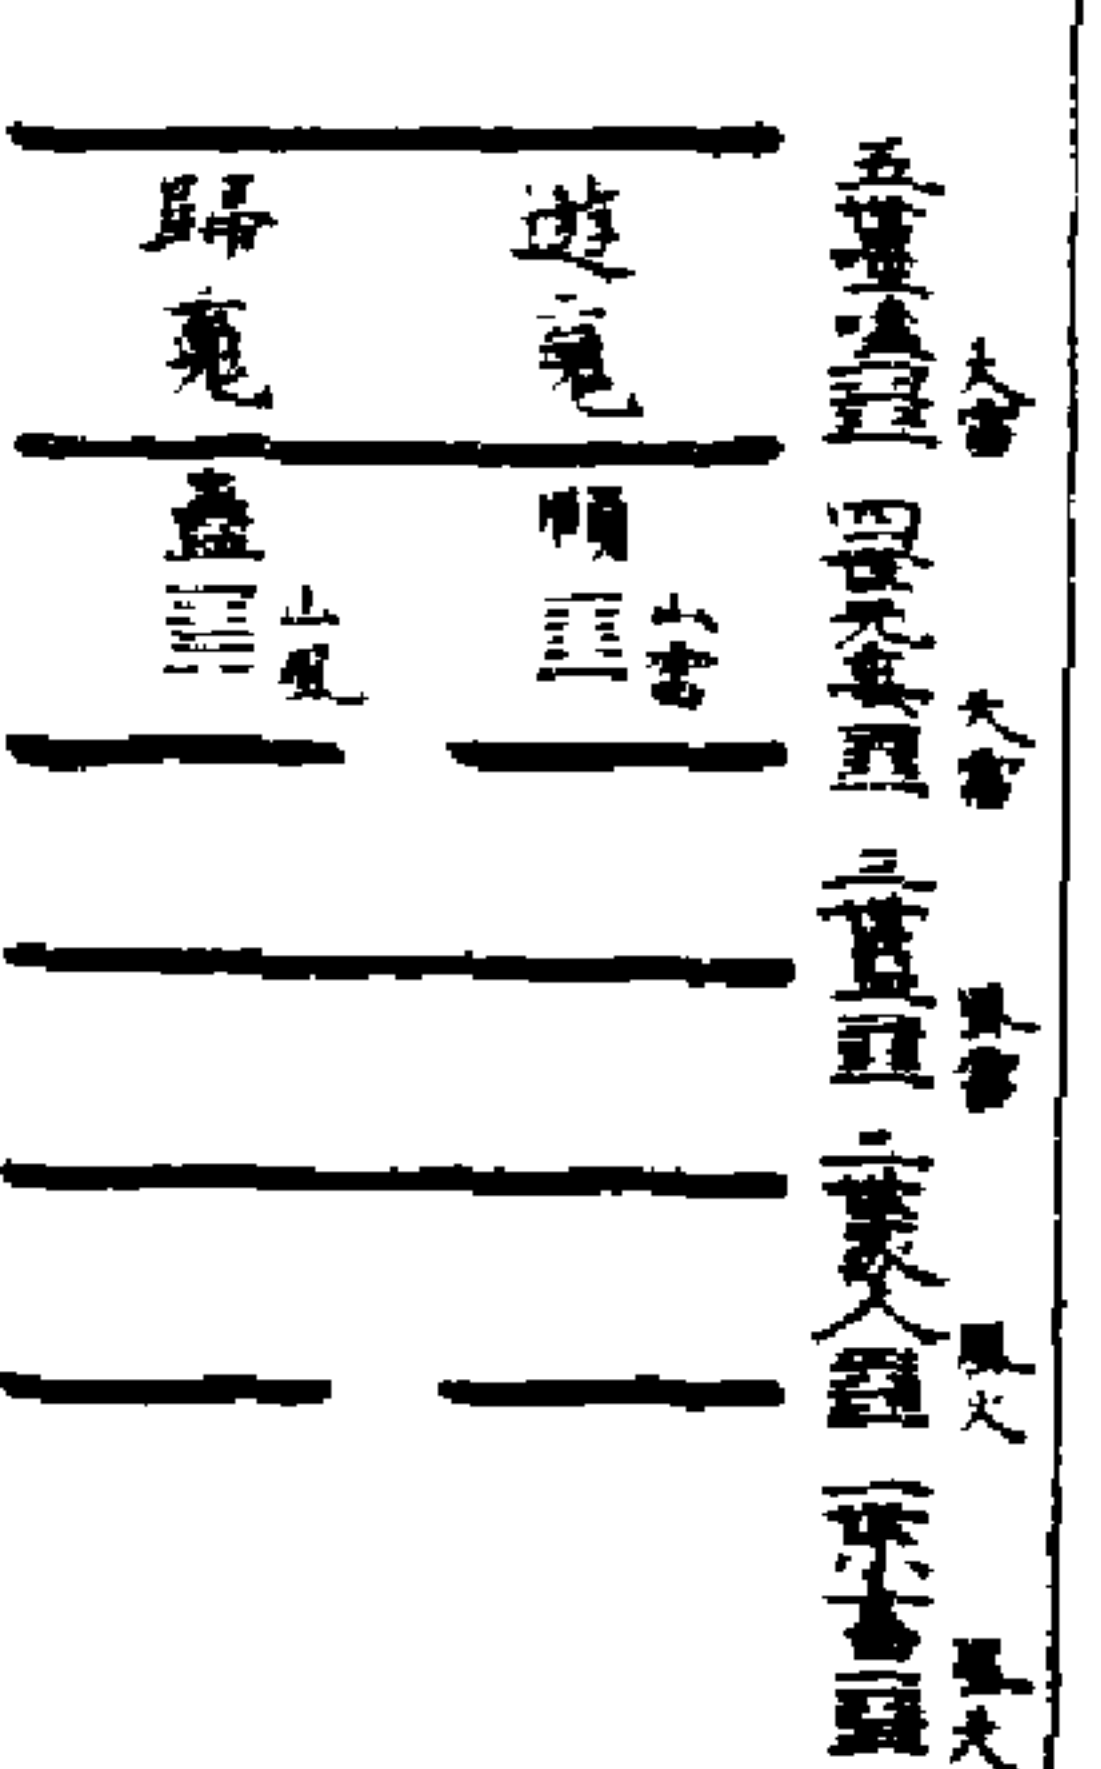 五世噬嗑
火雷
四世无妄
天雷
三世益
風雷
二世家人
風火
一世小畜
風天
遊魂
頤
山雷
歸魂
蠱
山風